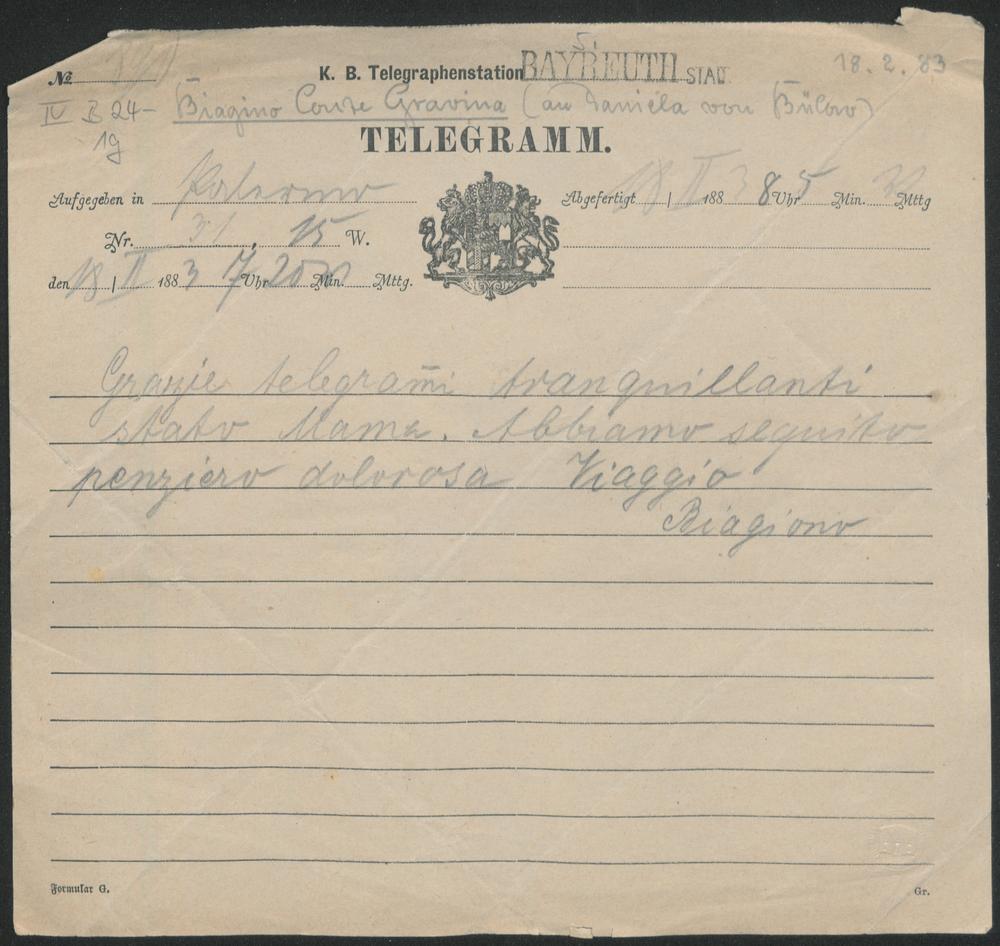 №
K. B. Telegraphenstation BAYREUTH STADT
18. 2. 83
IV B 24-
19
Biagino Conte Gravina (an Daniela von Bülow)
TELEGRAMM.
Aufgegeben in Palermo
Nr. 51, 15 W.
den 18 | II 1883 7 Uhr 20 Min. Mttg.
Abgefertigt 18 | II 1883 8 Uhr 5 Min. Mttg
Grazie telegram̄i tranquillanti
stato Mama. Abbiamo seguito
penziero dolorosa Viaggio
Biagiono
Formular G.
Gr.